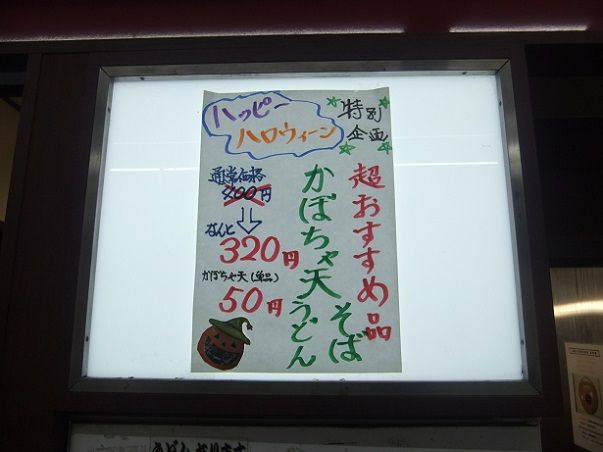 ハッピー
ハロウィーン
特別
企画
超おすすめ品
かぼちゃ天うどん
そば
通常価格
400円
なんと
320円
かぼちゃ天(単品)
50円